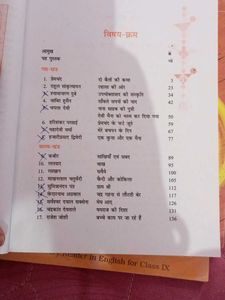 विषय-क्रम
आमुख
यह पुस्तक
गद्य-खंड
1. प्रेमचंद दो बैलों की कथा 3
2. राहुल सांकृत्यायन ल्हासा की ओर
3. श्यामाचरण दुबे उपभोक्तावाद की संस्कृति
4. जाबिर हुसैन साँवले सपनों की याद
5. चपला देवी नाना साहब की पुत्री
देवी मैना को भस्म कर दिया गया
6. हरिशंकर परसाई प्रेमचंद के फटे जूते 59
7. महादेवी वर्मा मेरे बचपन के दिन
8. हजारीप्रसाद द्विवेदी एक कुत्ता और एक मैना 77
काव्य-खंड
9. कबीर साखियाँ एवं सबद 89
10. ललद्यद वाख 95
11. रसखान सवैये
12. माखनलाल चतुर्वेदी कैदी और कोकिला 105
13. सुमित्रानंदन पंत ग्राम श्री
14. केदारनाथ अग्रवाल चंद्र गहना से लौटती बेर 117
15. सर्वेश्वर दयाल सक्सेना मेघ आए
16. चंद्रकांत देवताले यमराज की दिशा
17. राजेश जोशी बच्चे काम पर जा रहे हैं 136
in English for Class IX